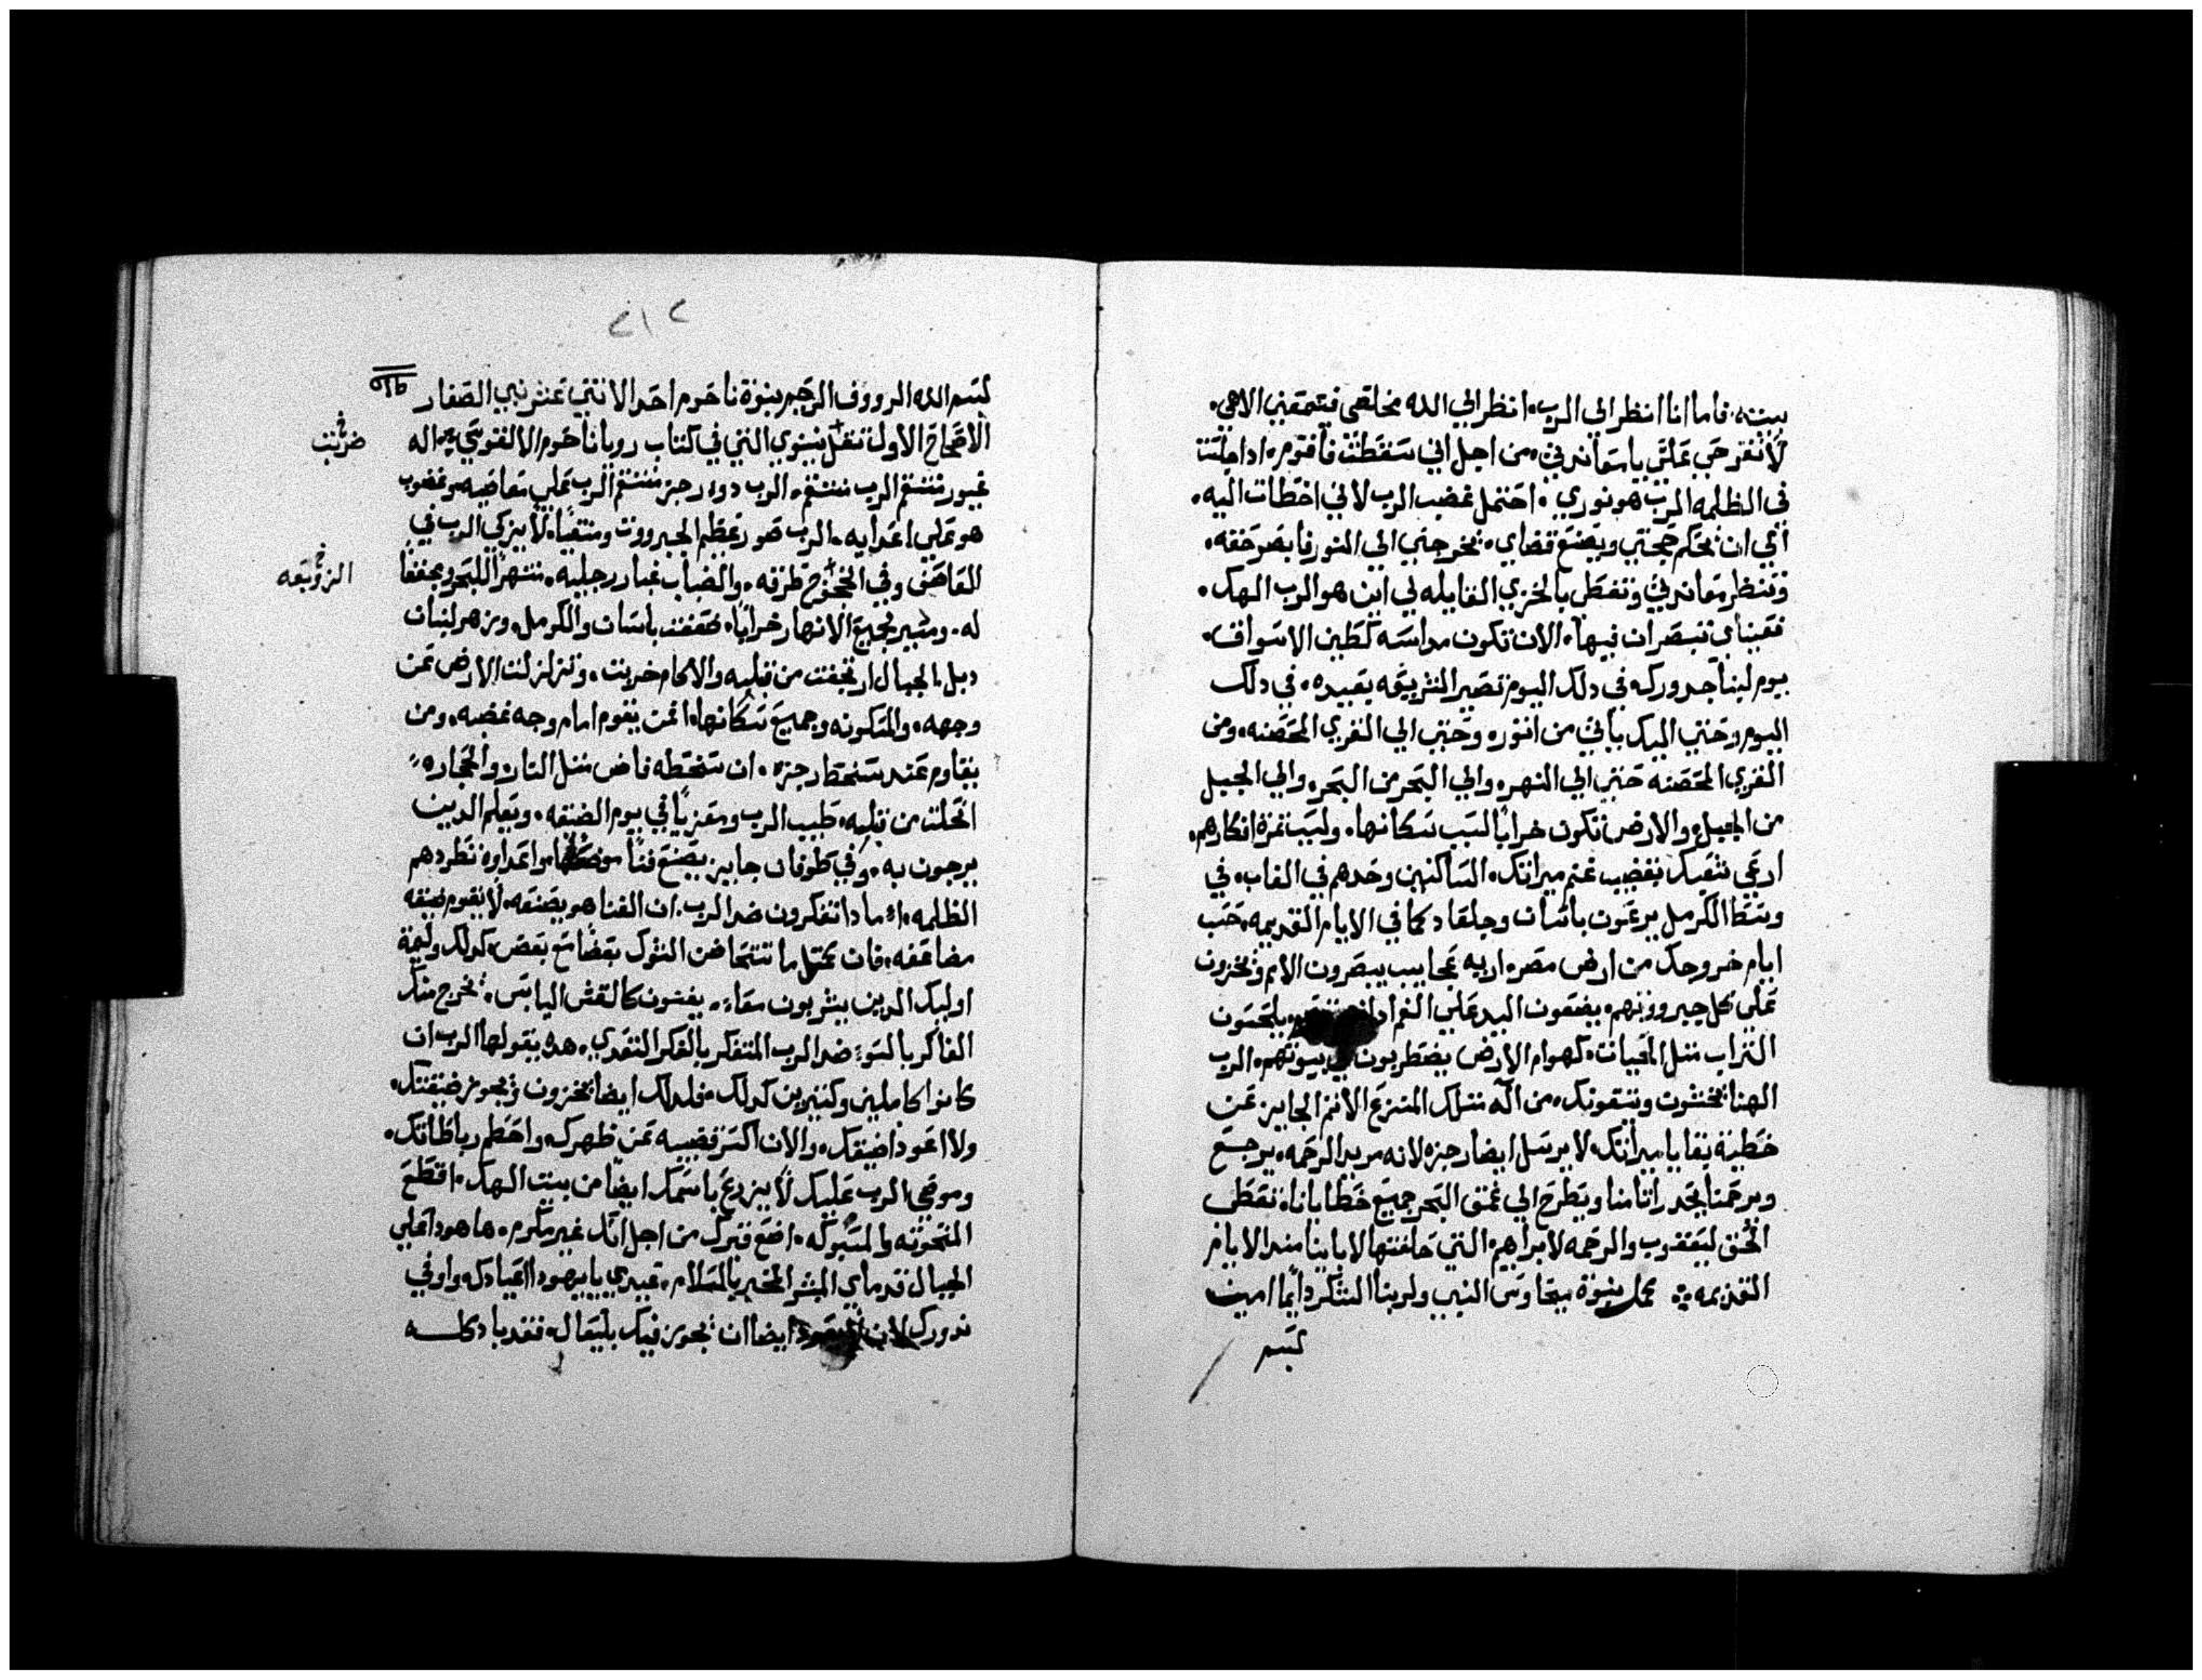 بيته. فاما انا انظر الى الرب. انظر الي الله مخلصي فيسمعني الاهي.
لا تفرحي علي يا معاندتي. من اجل اني سقطت فاقوم. ادا جلست
في الظلمه الرب هو نوري. احتمل غضب الرب لاني اخطات اليه.
الي ان يحكم حجتي ويصنع قضاي. يخرجني الي النور فابصر حقه.
وتنظر معاندتي وتغطي بالخزي القايله لي اين هو الرب الهك.
فعيناي تبصران فيها. الان تكون مداسه كطين الاسواق.
يوم لبنا جدورك. في دلك اليوم تصير الشريعه بعيده. في دلك
اليوم وحتي اليك ياتي من اتور. وحتي الي القري المحصنه. ومن
القري المحصنه حتي الي النهر. والي البحر من البحر. والي الجبل
من الجبل. والارض تكون خرابا لسبب سكانها. ولسبب ثمرة افكارهم.
ارعي شعبك بقضيب غنم ميراتك. الساكنين وحدهم في الغاب. في
وسط الكرمل يرعون باشان وجلعاد كما في الايام القديمه. حسب
ايام خروجك من ارض مصر. اريه عجايب يبصرون الامم ويخزون
علي كل جبروتهم. يضعون اليد علي الفم يلحسون
التراب متل الحيات. كهوام الارض يضطربون بيوتهم. الرب
الهنا يخشون ويتقونك. من اله متلك المنزع الاثم الجايز عن
خطية بقايا ميراتك. لا يرسل ايضا رجزه لانه مريد الرحمه. يرجع
ويرحمنا يحدر اثامنا ويطرح الي عمق البحر جميع خطايانا. تعطي
الحق ليعقوب والرحمه لابراهيم التي حلفتها لاباينا مند الايام
القديمه. كمل بنبوة ميخا وس النبي ولربنا الشكر دايما امين
بسم
٢١٢
بسم الله الرووف الرحيم بنوة ناحوم احد الاثني عشر نبي الصغار
الاصحاح الاول تقل نينوي التي في كتاب رويا ناحوم الالقوسي. اله
ضربت
غيور منتقم الرب منتقم. الرب دو رجز منتقم الرب علي معاضيه وغضوب
هو علي اعدايه. الرب صور عظيم الجبرووت ومنتقيا لا يزكي الرب في
العاصف وفي طرقه. والضباب غبار رجليه. منتهرا للبحر ومجففا
الزوبعه
له. ومصير لجميع الانهار خرابا. ضعفت باسان والكرمل. وزهر لبنان
دبل. الجبال ارتجفت من قبله والاكام خربت. وتزلزلت الارض عن
وجهه. والمسكونه وجميع سكانها. امن يقوم امام وجه غضبه. ومن
يقاوم عند سخط رجزه. ان سخطه فاض متل النار والحجاره
انحلت من قبله. طيب الرب ومعزيا في يوم الضيقه. ويعلم الدين
يرجون به. وفي طوفان جايز يصنع فنا موضعها واعداوه تطردهم
الظلمه. مادا تفكرون ضد الرب. ان الفنا هو يصنعه. لا تقوم ضيقه
مضاعفه. فان كمتل ما تتحاضن الشوك بعضا مع بعض. كدلك وليمة
اوليك الدين يشربون معا. يفنون كالقش اليابس. يخرج منك
الفاكر بالسوء ضد الرب المتفكر بالفكر التعدي. هده يقولها الرب ان
كانوا كاملين وكتيرين كدلك. فلدلك ايضا يخزون ويجوز ضيقتك.
ولا اعود اضيقك. والان اكسر قضيبه عن ظهرك. واحطم رباطاتك.
وموصي الرب عليك لا يزرع باسمك ايضا من بيت الهك. اقطع
المنحوته والمسبوكه. اضع قبرك من اجل انك غير مكرم. ها هودا علي
الجبال قدماي المبشر المخبر بالسلام. عيدي يا يهودا اعيادك. واوفي
ندورك لان ايضا ان يجوز فيك بليعال. فقد باد كله